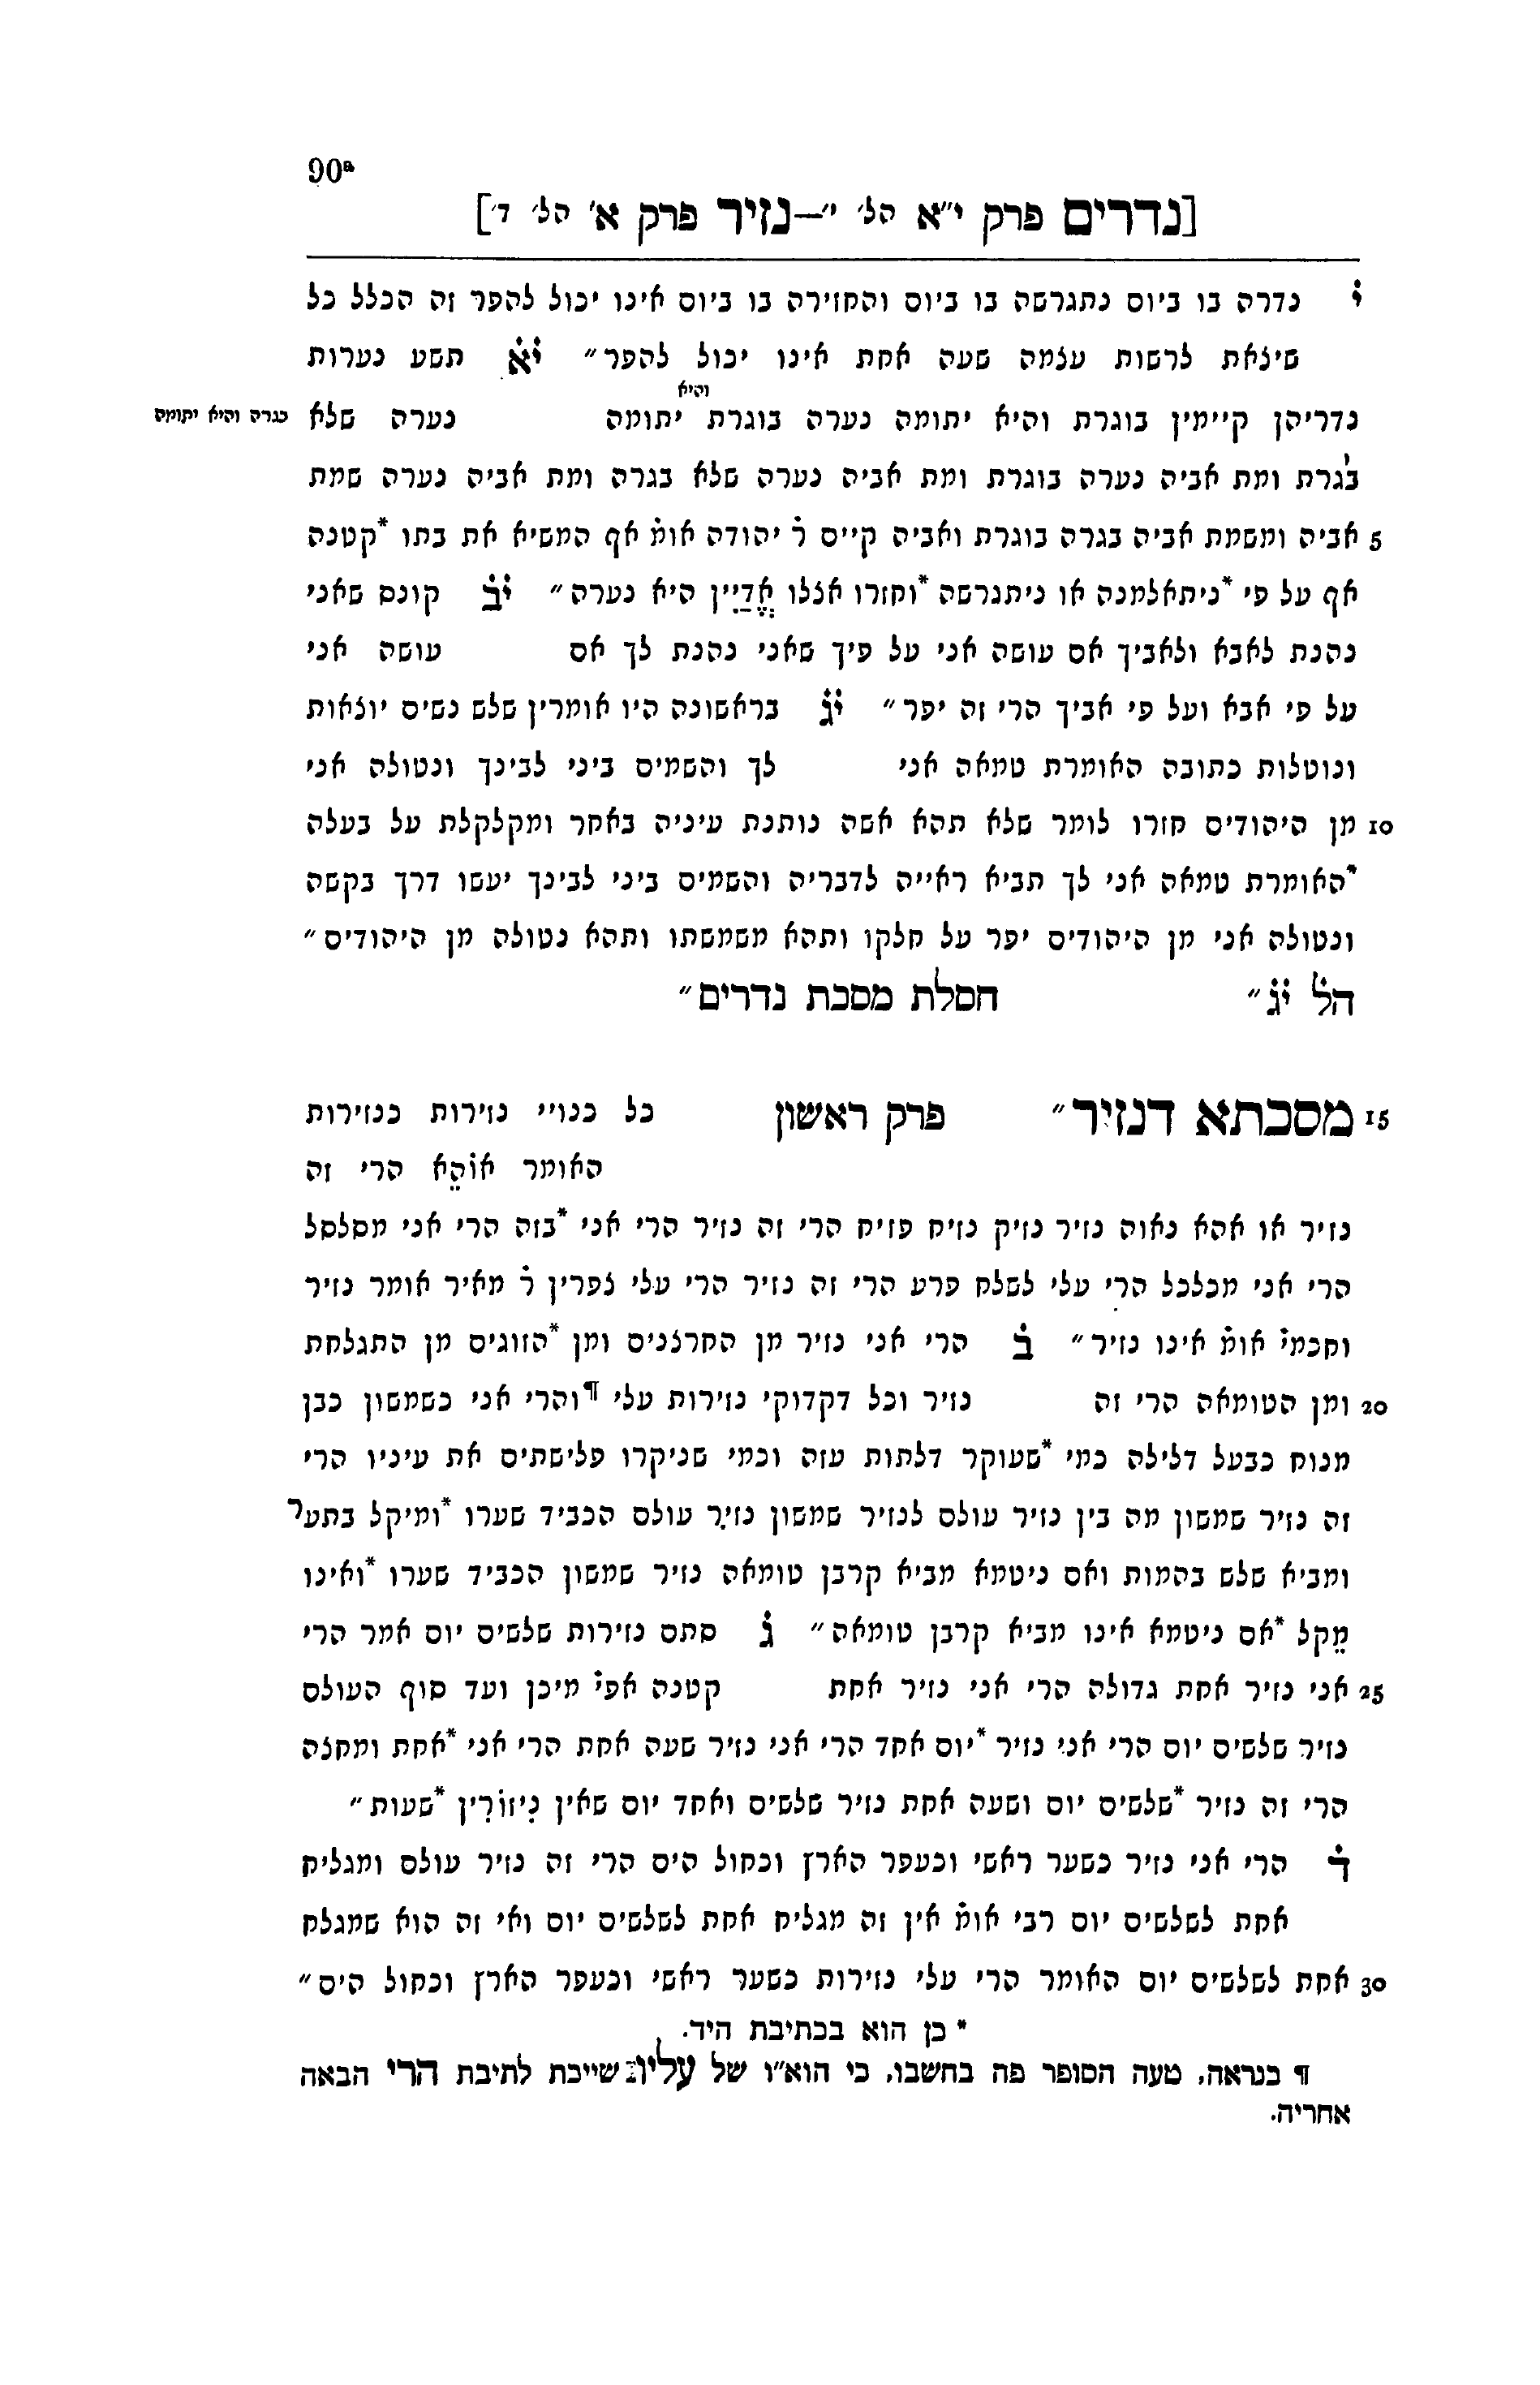 90ª
[נדרים פרק י"א הל' י'—נזיר פרק א' הל' ד']
י נדרה בו ביום נתגרשה בו ביום והחזירה בו ביום אינו יכול להפר זה הכלל כל
שיצאת לרשות עצמה שעה אחת אינו יכול להפר״ יא תשע נערות
והיא
נדריהן קיימין בוגרת והיא יתומה נערה בוגרת יתומה נערה שלא בגרה והיא יתומה
בגרת ומת אביה נערה בוגרת ומת אביה נערה שלא בגרה ומת אביה נערה שמת
5 אביה ומשמת אביה בגרה בוגרת ואביה קיים ר׳ יהודה אומ׳ אף המשיא את בתו *קטנה
אף על פי *ניתאלמנה או ניתגרשה *וחזרו אצלו אֲדַיִין היא נערה״ יב קונם שאני
נהנת לאבא ולאביך אם עושה אני על פיך שאני נהנת לך אם עושה אני
על פי אבא ועל פי אביך הרי זה יפר״ יג בראשונה היו אומרין שלש נשים יוצאות
ונוטלות כתובה האומרת טמאה אני לך והשמים ביני לבינך ונטולה אני
10 מן היהודים חזרו לומר שלא תהא אשה נותנת עיניה באחר ומקלקלת על בעלה
*האומרת טמאה אני לך תביא ראייה לדבריה והשמים ביני לבינך יעשו דרך בקשה
ונטולה אני מן היהודים יפר על חלקו ותהא משמשתו ותהא נטולה מן היהודים״
הל׳ יג״ חסלת מסכת נדרים״
15 מסכתא דנזיר״ פרק ראשון כל כנויי נזירות כנזירות
האומר אוֹהֵא הרי זה
נזיר או אהא נאוה נזיר נזיק נזיח פזיח הרי זה נזיר הרי אני *בזה הרי אני מסלסל
הרי אני מכלכל הרי עלי לשלח פרע הרי זה נזיר הרי עלי צפרין ר׳ מאיר אומר נזיר
וחכמי׳ אומ׳ אינו נזיר״ ב הרי אני נזיר מן החרצנים ומן *הזוגים מן התגלחת
20 ומן הטומאה הרי זה נזיר וכל דקדוקי נזירות עלי ¶והרי אני כשמשון כבן
מנוח כבעל דלילה כמי *שעוקר דלתות עזה וכמי שניקרו פלישתים את עיניו הרי
זה נזיר שמשון מה בין נזיר עולם לנזיר שמשון נזיר עולם הכביד שערו *ומיקל בתער
ומביא שלש בהמות ואם ניטמא מביא קרבן טומאה נזיר שמשון הכביד שערו *ואינו
מֵקל *אם ניטמא אינו מביא קרבן טומאה״ ג סתם נזירות שלשים יום אמר הרי
25 אני נזיר אחת גדולה הרי אני נזיר אחת קטנה אפי׳ מיכן ועד סוף העולם
נזיר שלשים יום הרי אני נזיר *יום אחד הרי אני נזיר שעה אחת הרי אני *אחת ומחצה
הרי זה נזיר *שלשים יום ושעה אחת נזיר שלשים ואחד יום שאין נִיזוֹרִין *שעות״
ד הרי אני נזיר כשער ראשי וכעפר הארץ וכחול הים הרי זה נזיר עולם ומגליח
אחת לשלשים יום רבי אומ׳ אין זה מגליח אחת לשלשים יום ואי זה הוא שמגלח
30 אחת לשלשים יום האומר הרי עלי נזירות כשער ראשי וכעפר הארץ וכחול הים״
* כן הוא בכתיבת היד.
¶ כנראה, טעה הסופר פה בחשבו, כי הוא"ו של עליו שייכת לתיבת הרי הבאה
אחריה.